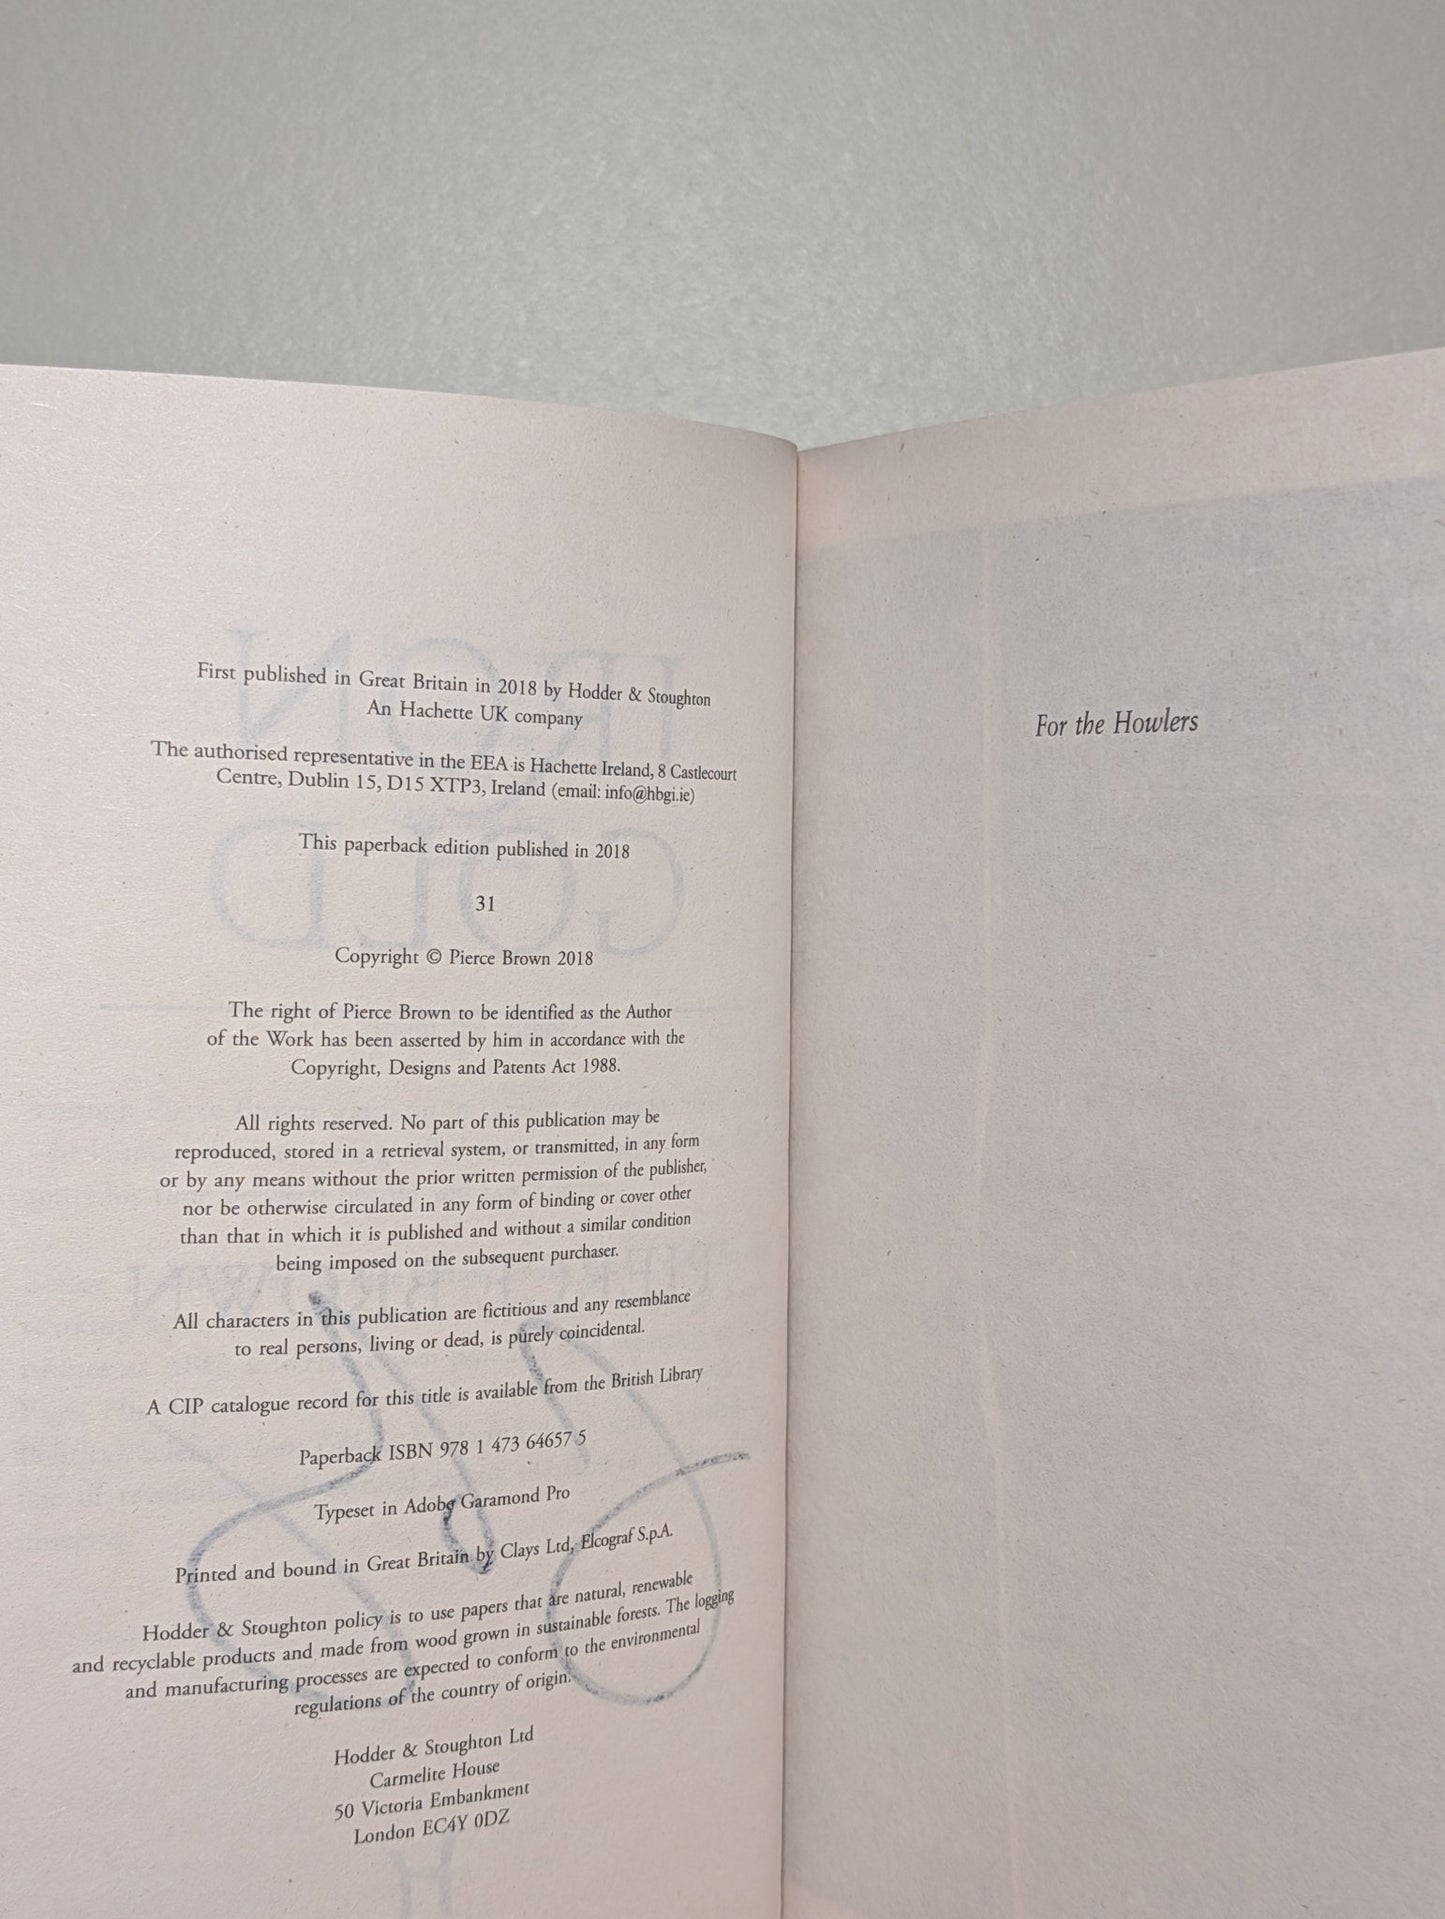 First published in Great Britain in 2018 by Hodder & Stoughton
An Hachette UK company
The authorised representative in the EEA is Hachette Ireland, 8 Castlecourt
Centre, Dublin 15, D15 XTP3, Ireland (email: info@hbgi.ie)
This paperback edition published in 2018
31
Copyright © Pierce Brown 2018
The right of Pierce Brown to be identified as the Author
of the Work has been asserted by him in accordance with the
Copyright, Designs and Patents Act 1988.
All rights reserved. No part of this publication may be
reproduced, stored in a retrieval system, or transmitted, in any form
or by any means without the prior written permission of the publisher,
nor be otherwise circulated in any form of binding or cover other
than that in which it is published and without a similar condition
being imposed on the subsequent purchaser.
All characters in this publication are fictitious and any resemblance
to real persons, living or dead, is purely coincidental.
A CIP catalogue record for this title is available from the British Library
Paperback ISBN 978 1 473 64657 5
Typeset in Adobe Garamond Pro
Printed and bound in Great Britain by Clays Ltd, Elcograf S.p.A.
Hodder & Stoughton policy is to use papers that are natural, renewable
and recyclable products and made from wood grown in sustainable forests. The logging
and manufacturing processes are expected to conform to the environmental
regulations of the country of origin.
Hodder & Stoughton Ltd
Carmelite House
50 Victoria Embankment
London EC4Y 0DZ
For the Howlers